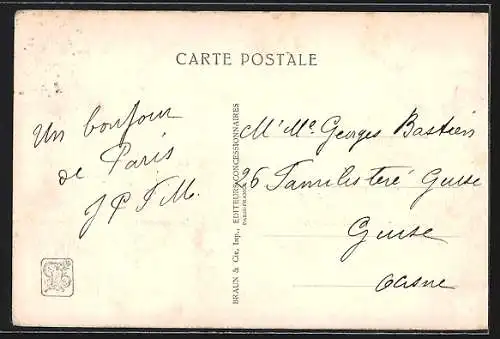 CARTE POSTALE
Un bonjour
de Paris
J P F M.
BRAUN & Cie, Imp., EDITEURS-CONCESSIONNAIRES
PARIS-FRANCE
Mr Me Georges Bastien
26 Familisteré Guise
Guise
Aisne